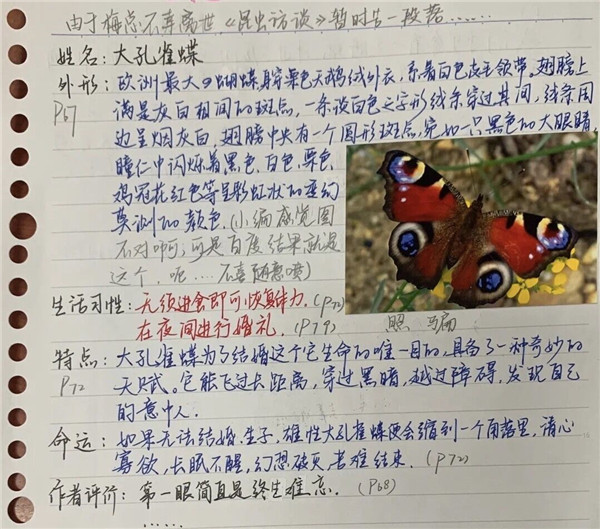 由于梅思不再离世《昆虫访谈》暂时告一段落……
姓名：大孔雀蝶
外形：欧洲最大的蝴蝶身穿栗色天鹅绒外衣，系着白色皮毛领带。翅膀上
P67 满是灰白相间的斑点，一条淡白色之字形线条穿过其间，线条周
边呈烟灰白，翅膀中央有一个圆形斑点，宛如一只黑色的大眼睛，
瞳仁中闪烁着黑色、白色、栗色、
鸡冠花红色等呈彩虹状的变幻
莫测的颜色。(小编感觉图
不对啊，可是百度结果就是
这个，呃…不喜随意喷)
生活习性：无须进食即可恢复体力。(P72)
在夜间进行婚礼。(P79)
照骗
特点：大孔雀蝶为了结婚这个它生命的唯一目的，具备了一种奇妙的
P72 天赋。它能飞过长距离，穿过黑暗，越过障碍，发现自己
的意中人。
命运：如果无法结婚、生子，雄性大孔雀蝶便会缩到一个角落里，清心
寡欲，长眠不醒，幻想破灭，苦难结束。(P72)
作者评价：第一眼简直是终生难忘。(P68)
……